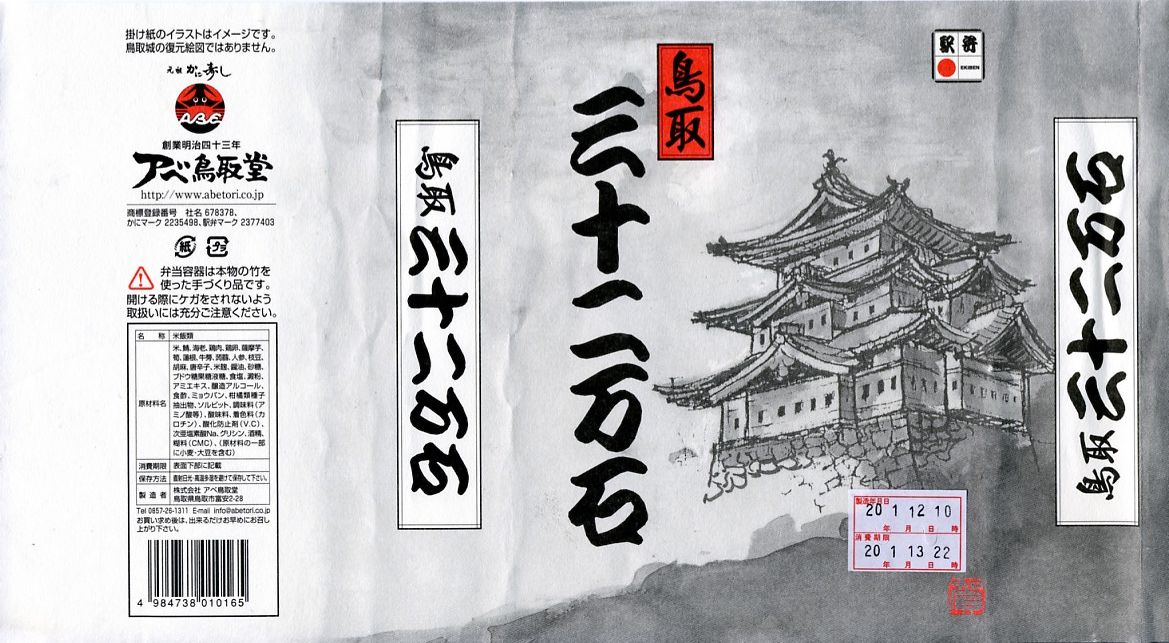 掛け紙のイラストはイメージです。
鳥取城の復元絵図ではありません。
元祖 かに寿し
ABE
創業明治四十三年
アベ鳥取堂
http://www.abetori.co.jp
商標登録番号　社名 678378、
かにマーク 2235498、駅弁マーク 2377403
紙
プラ
弁当容器は本物の竹を
使った手づくり品です。
開ける際にケガをされないよう
取扱いには充分ご注意ください。
名　称 米飯類
原材料名
米、鯖、海老、鶏肉、鶏卵、薩摩芋、
筍、蓮根、牛蒡、蒟蒻、人参、枝豆、
胡麻、唐辛子、米麹、醤油、砂糖、
ブドウ糖果糖液糖、食塩、澱粉、
アミエキス、醸造アルコール、
食酢、ミョウバン、柑橘類種子
抽出物、ソルビット、調味料(ア
ミノ酸等)、酸味料、着色料(カ
ロチン)、酸化防止剤(V.C)、
次亜塩素酸Na、グリシン、酒精、
糊料(CMC)、(原材料の一部
に小麦・大豆を含む)
消費期限 表面下部に記載
保存方法 直射日光・高温多湿を避けて保存して下さい。
製造者
株式会社 アベ鳥取堂
鳥取県鳥取市富安2-28
Tel 0857-26-1311 E-mail info@abetori.co.jp
お買い求め後は、出来るだけお早めにお召し
上がり下さい。
4 984738 010165
鳥取三十二万石
鳥取
三十二万石
駅弁
EKIBEN
鳥取三十二万石
製造年月日
20 1 12 10
年 月 日 時
消費期限
20 1 13 22
年 月 日 時